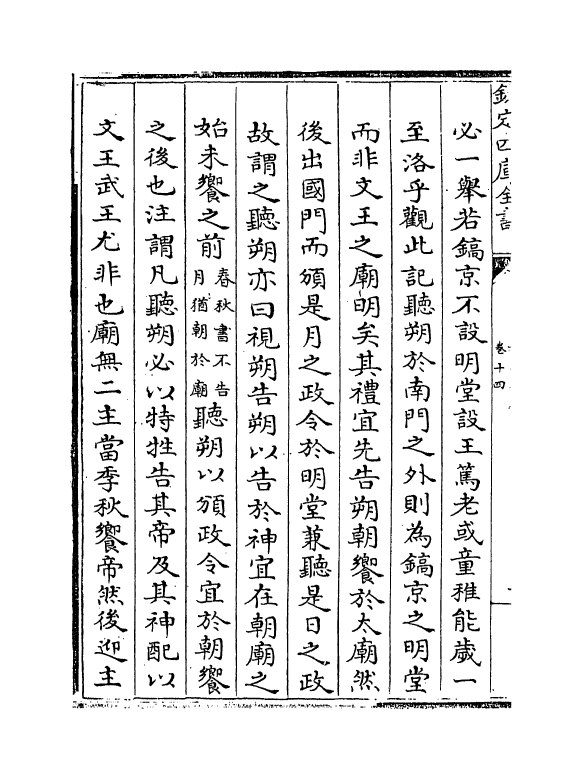 欽定四庫全書
卷十四
必一舉若鎬京不設明堂設王篤老或童稚能歲一
至洛乎觀此記聽朔於南門之外則為鎬京之明堂
而非文王之廟明矣其禮宜先告朔朝饗於太廟然
後出國門而頒是月之政令於明堂兼聽是日之政
故謂之聽朔亦曰視朔告朔以告於神宜在朝廟之
始未饗之前春秋書不告月猶朝於廟聽朔以頒政令宜於朝饗
之後也注謂凡聽朔必以特牲告其帝及其神配以
文王武王尤非也廟無二主當季秋饗帝然後迎主